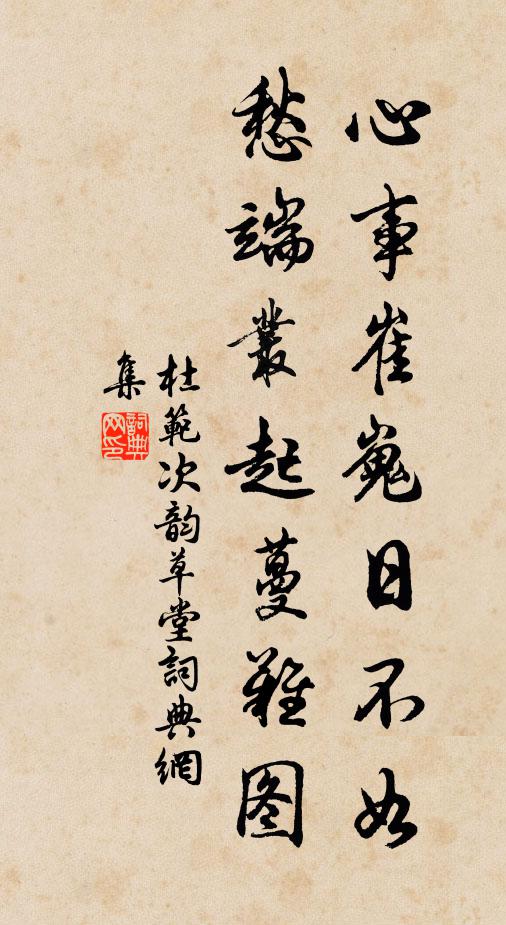 心事崔嵬日不如
愁端叢起蔓難图
杜範次韵草堂詞典網
集
詞典
网印